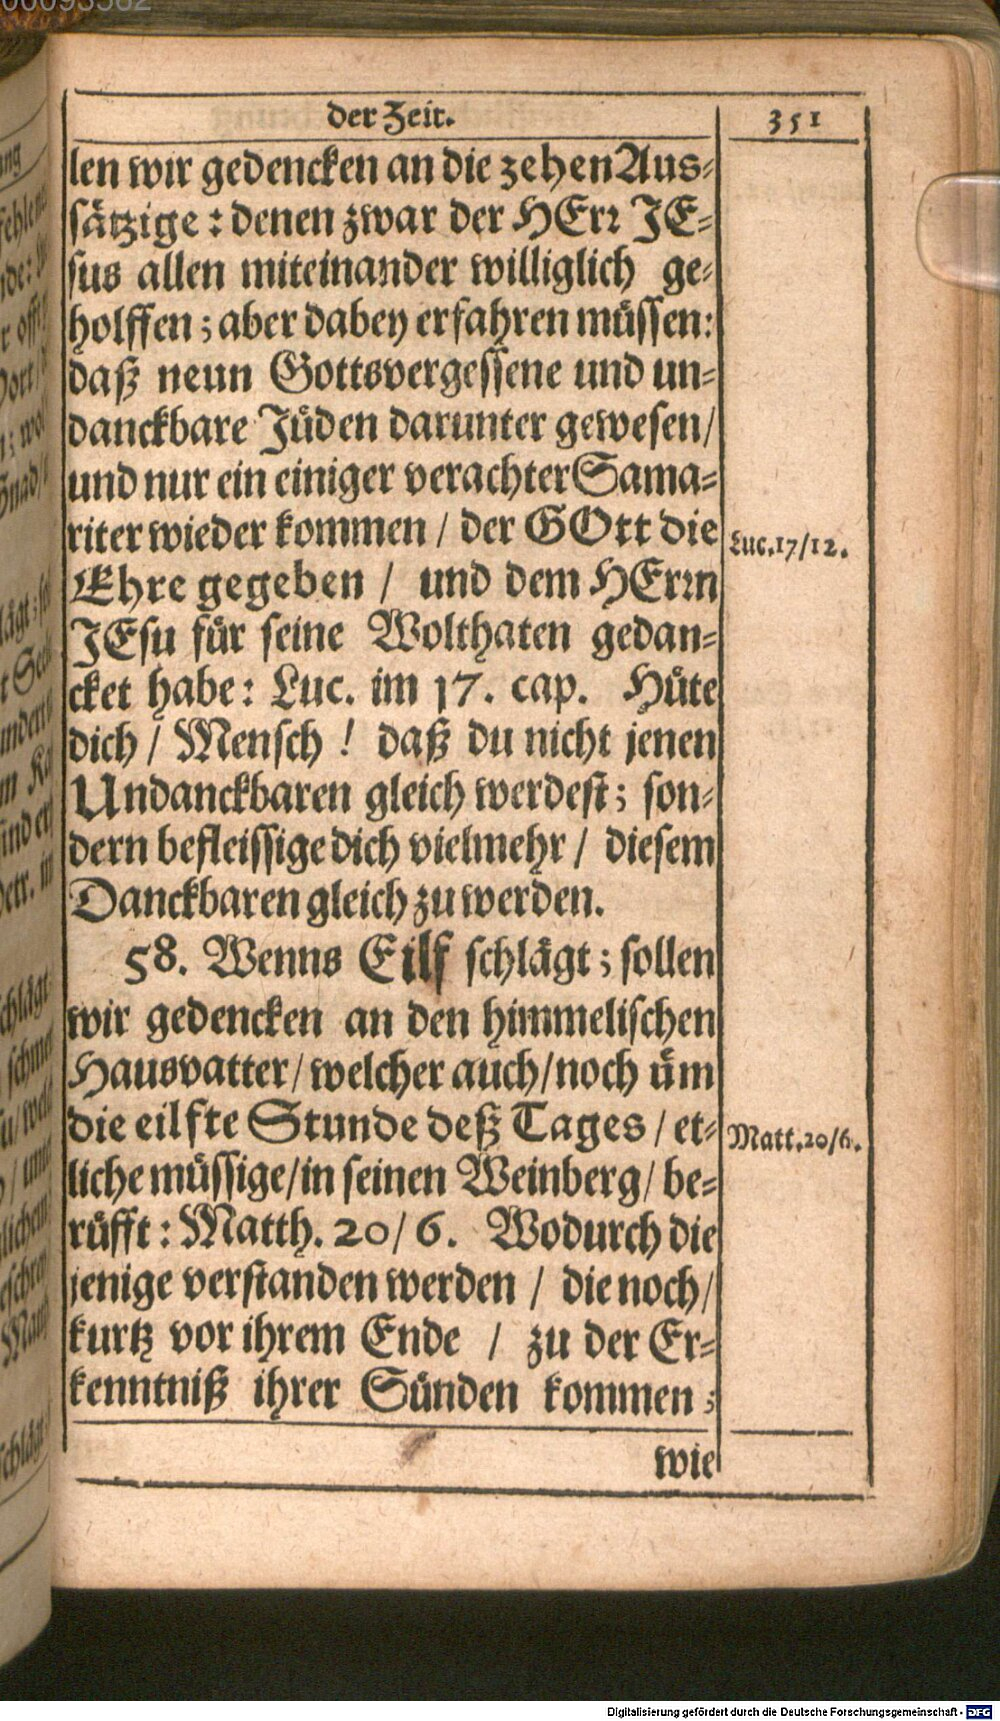 der Zeit.
351
len wir gedencken an die zehen Aus-
sätzige: denen zwar der HErr JE-
sus allen miteinander williglich ge-
holffen; aber dabey erfahren müssen:
daß neun Gottsvergessene und un-
danckbare Jüden darunter gewesen/
und nur ein einiger verachter Sama-
riter wieder kommen / der GOtt die
Ehre gegeben / und dem HErrn
JEsu für seine Wolthaten gedan-
cket habe: Luc. im 17. cap. Hüte
dich / Mensch ! daß du nicht jenen
Undanckbaren gleich werdest; son-
dern befleissige dich vielmehr / diesem
Danckbaren gleich zu werden.
Luc.17/12.
58. Wenns Eilf schlägt; sollen
wir gedencken an den himmelischen
Hausvatter/ welcher auch/ noch üm
die eilfte Stunde deß Tages / et-
liche müssige/ in seinen Weinberg/ be-
rüfft: Matth. 20/ 6. Wodurch die
jenige verstanden werden / die noch/
kurtz vor ihrem Ende / zu der Er-
kenntniß ihrer Sünden kommen;
Matt.20/6.
wie
Digitalisierung gefördert durch die Deutsche Forschungsgemeinschaft - DFG